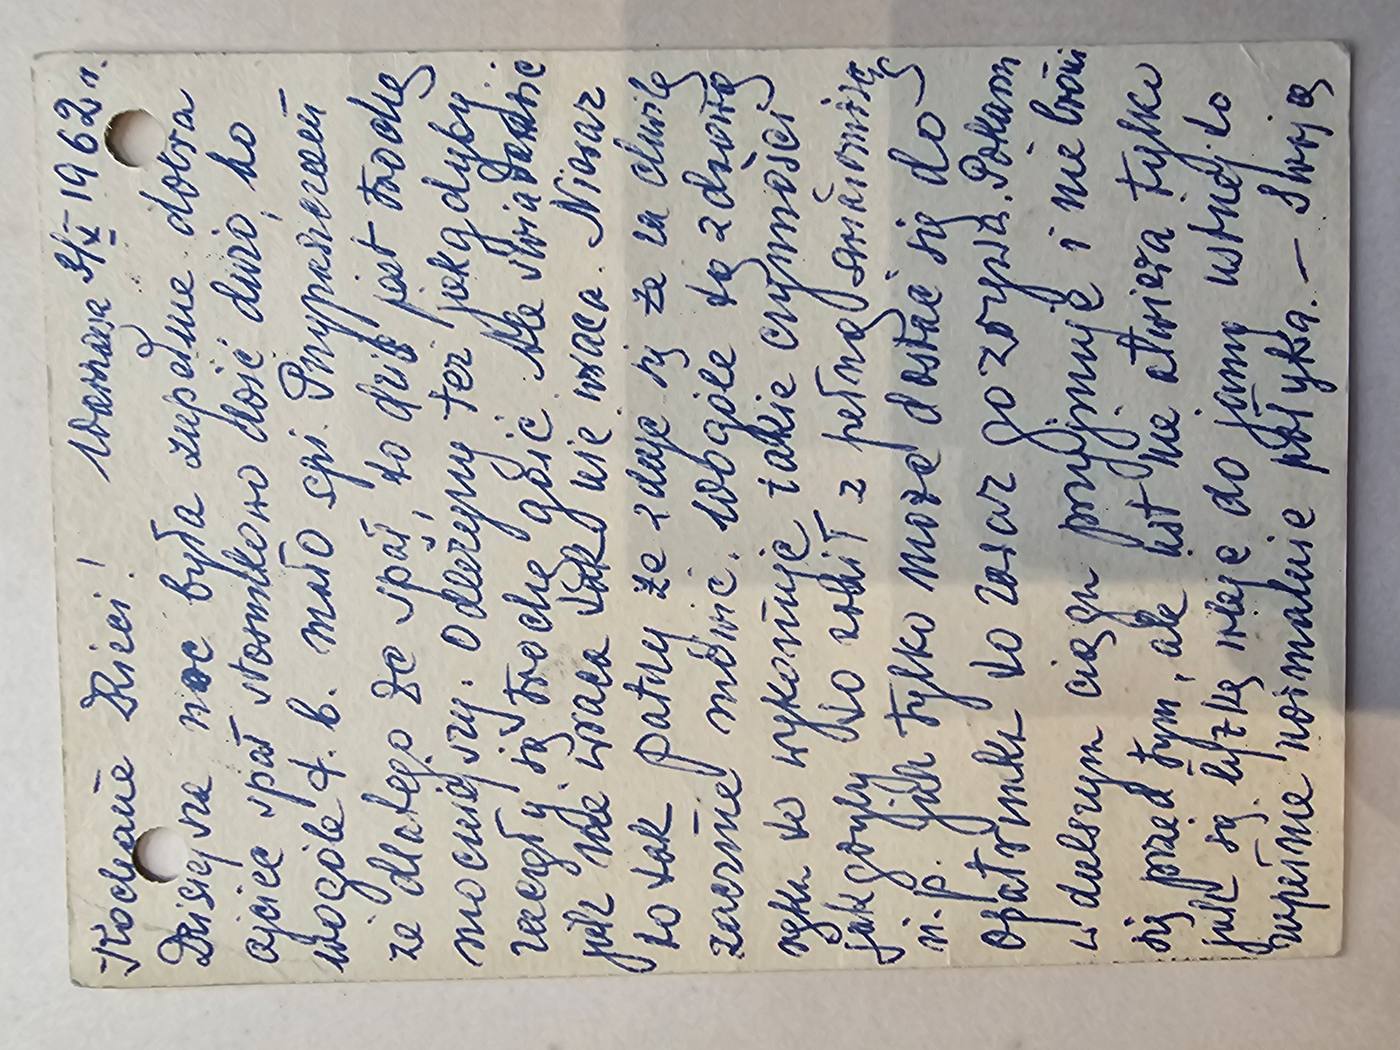 Kochane Dzieci! Warszawa 3/XI-1962 r.
Dzisiejsza noc była zupełnie dobra
ojciec spał stosunkowo dość dużo, bo
wogóle t. b. mało śpi. Przypuszczam
że dlatego że spał, to dziś jest trochę
mocniejszy. Odleżyny też jak gdyby
zaczęły się trochę goić. Ale świadomość
jak nie wraca tak nie wraca. Nieraz
to tak patrzy że zdaje się że za chwilę
zacznie mówić. Wogóle tą zdrową
ręką to wykonuje takie czynności
jak gdyby to robił z pełną świadomością
n.p. jak tylko może dostać się do
opatrunku to zaraz go zrywa. Pokarm
w dalszym ciągu przyjmuje i nie broni
się przed tym, ale ust nie otwiera tylko
jak się łyżkę wleje do jamy ustnej to
zupełnie normalnie połyka. —